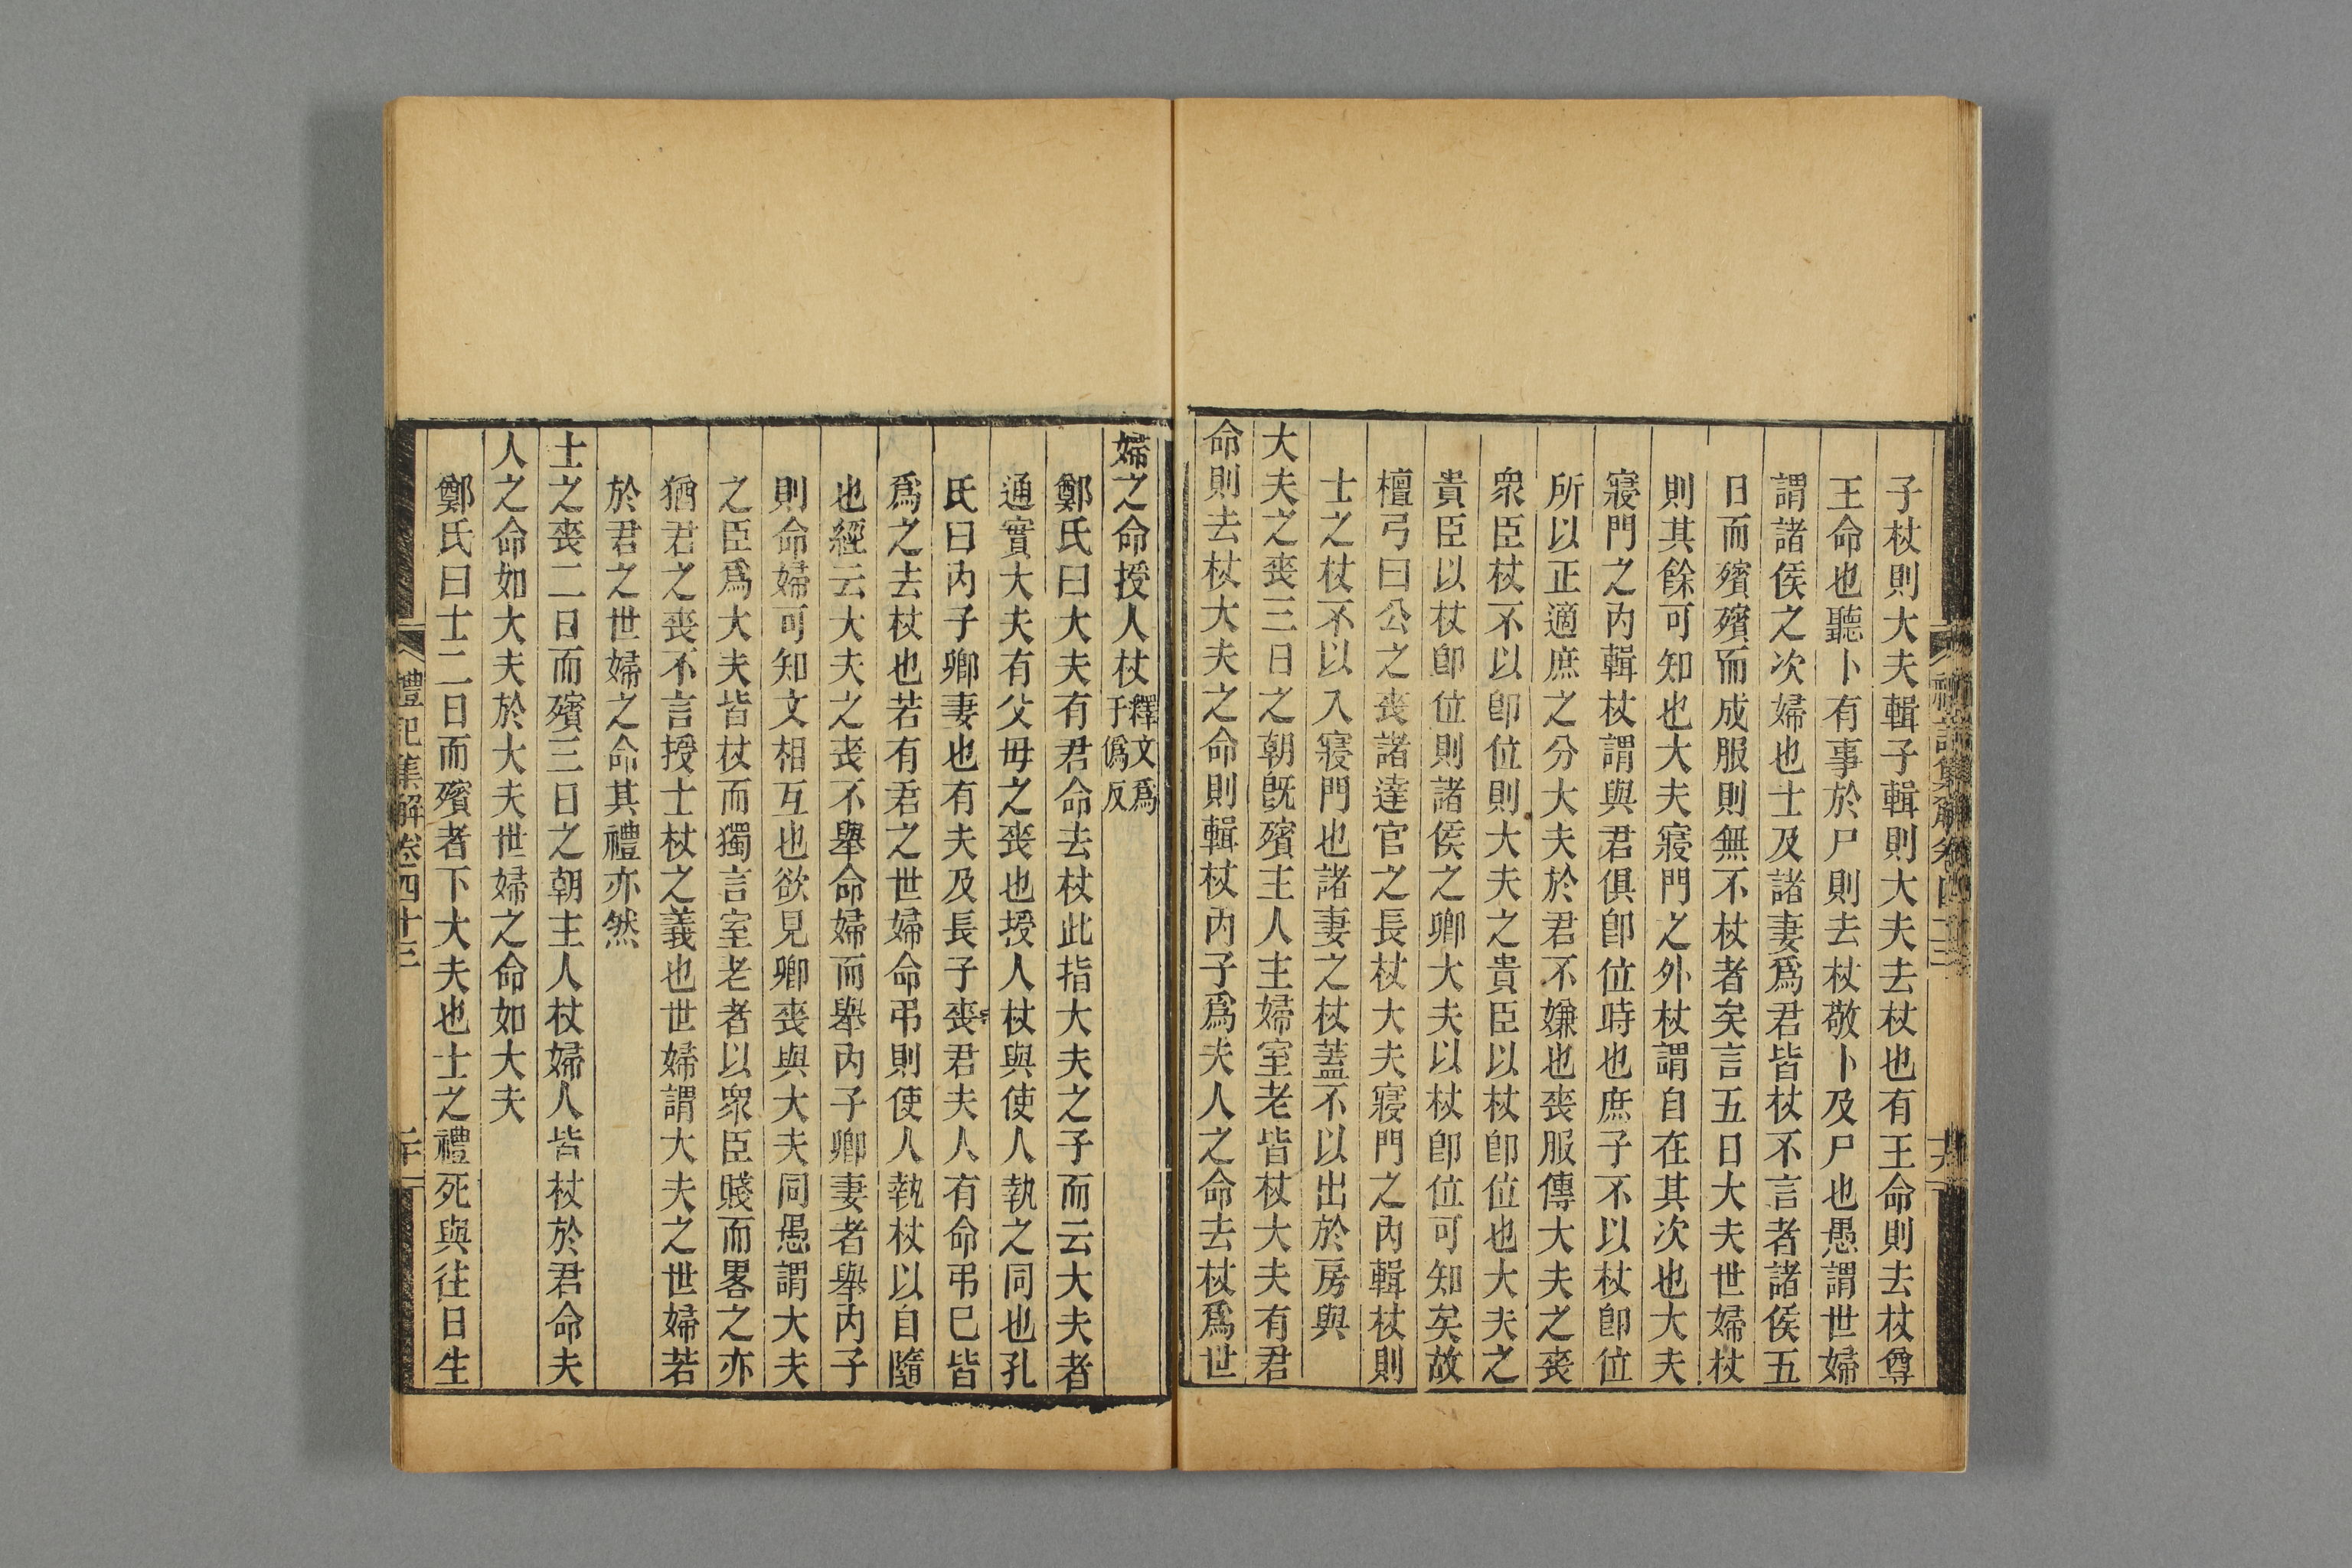 子杖則大夫輯子輯則大夫去杖也有王命則去杖尊
王命也聽卜有事於尸則去杖敬卜及尸也愚謂世婦
謂諸侯之次婦也士及諸妻爲君皆杖不言者諸侯五
日而殯殯而成服則無不杖者矣言五日大夫世婦杖
則其餘可知也大夫寢門之外杖謂自在其次也大夫
寢門之內輯杖謂與君俱卽位時也庶子不以杖卽位
所以正適庶之分大夫於君不嫌也喪服傳大夫之喪
衆臣杖不以卽位則大夫之貴臣以杖卽位也大夫之
貴臣以杖卽位則諸侯之卿大夫以杖卽位可知矣故
檀弓曰公之喪諸達官之長杖大夫寢門之內輯杖則
士之杖不以入寢門也諸妻之杖蓋不以出於房與
大夫之喪三日之朝旣殯主人主婦室老皆杖大夫有君
命則去杖大夫之命則輯杖內子爲夫人之命去杖爲世
婦之命授人杖釋文爲于僞反
鄭氏曰大夫有君命去杖此指大夫之子而云大夫者
通實大夫有父母之喪也授人杖與使人執之同也孔
氏曰內子卿妻也有夫及長子喪君夫人有命弔已皆
爲之去杖也若有君之世婦命弔則使人執杖以自隨
也經云大夫之喪不舉命婦而舉內子卿妻者舉內子
則命婦可知文相互也欲見卿喪與大夫同愚謂大夫
之臣爲大夫皆杖而獨言室老者以衆臣賤而畧之亦
猶君之喪不言授士杖之義也世婦謂大夫之世婦若
於君之世婦之命其禮亦然
士之喪二日而殯三日之朝主人杖婦人皆杖於君命夫
人之命如大夫於大夫世婦之命如大夫
鄭氏曰士二日而殯者下大夫也士之禮死與往日生
禮記集解卷四十三
二十